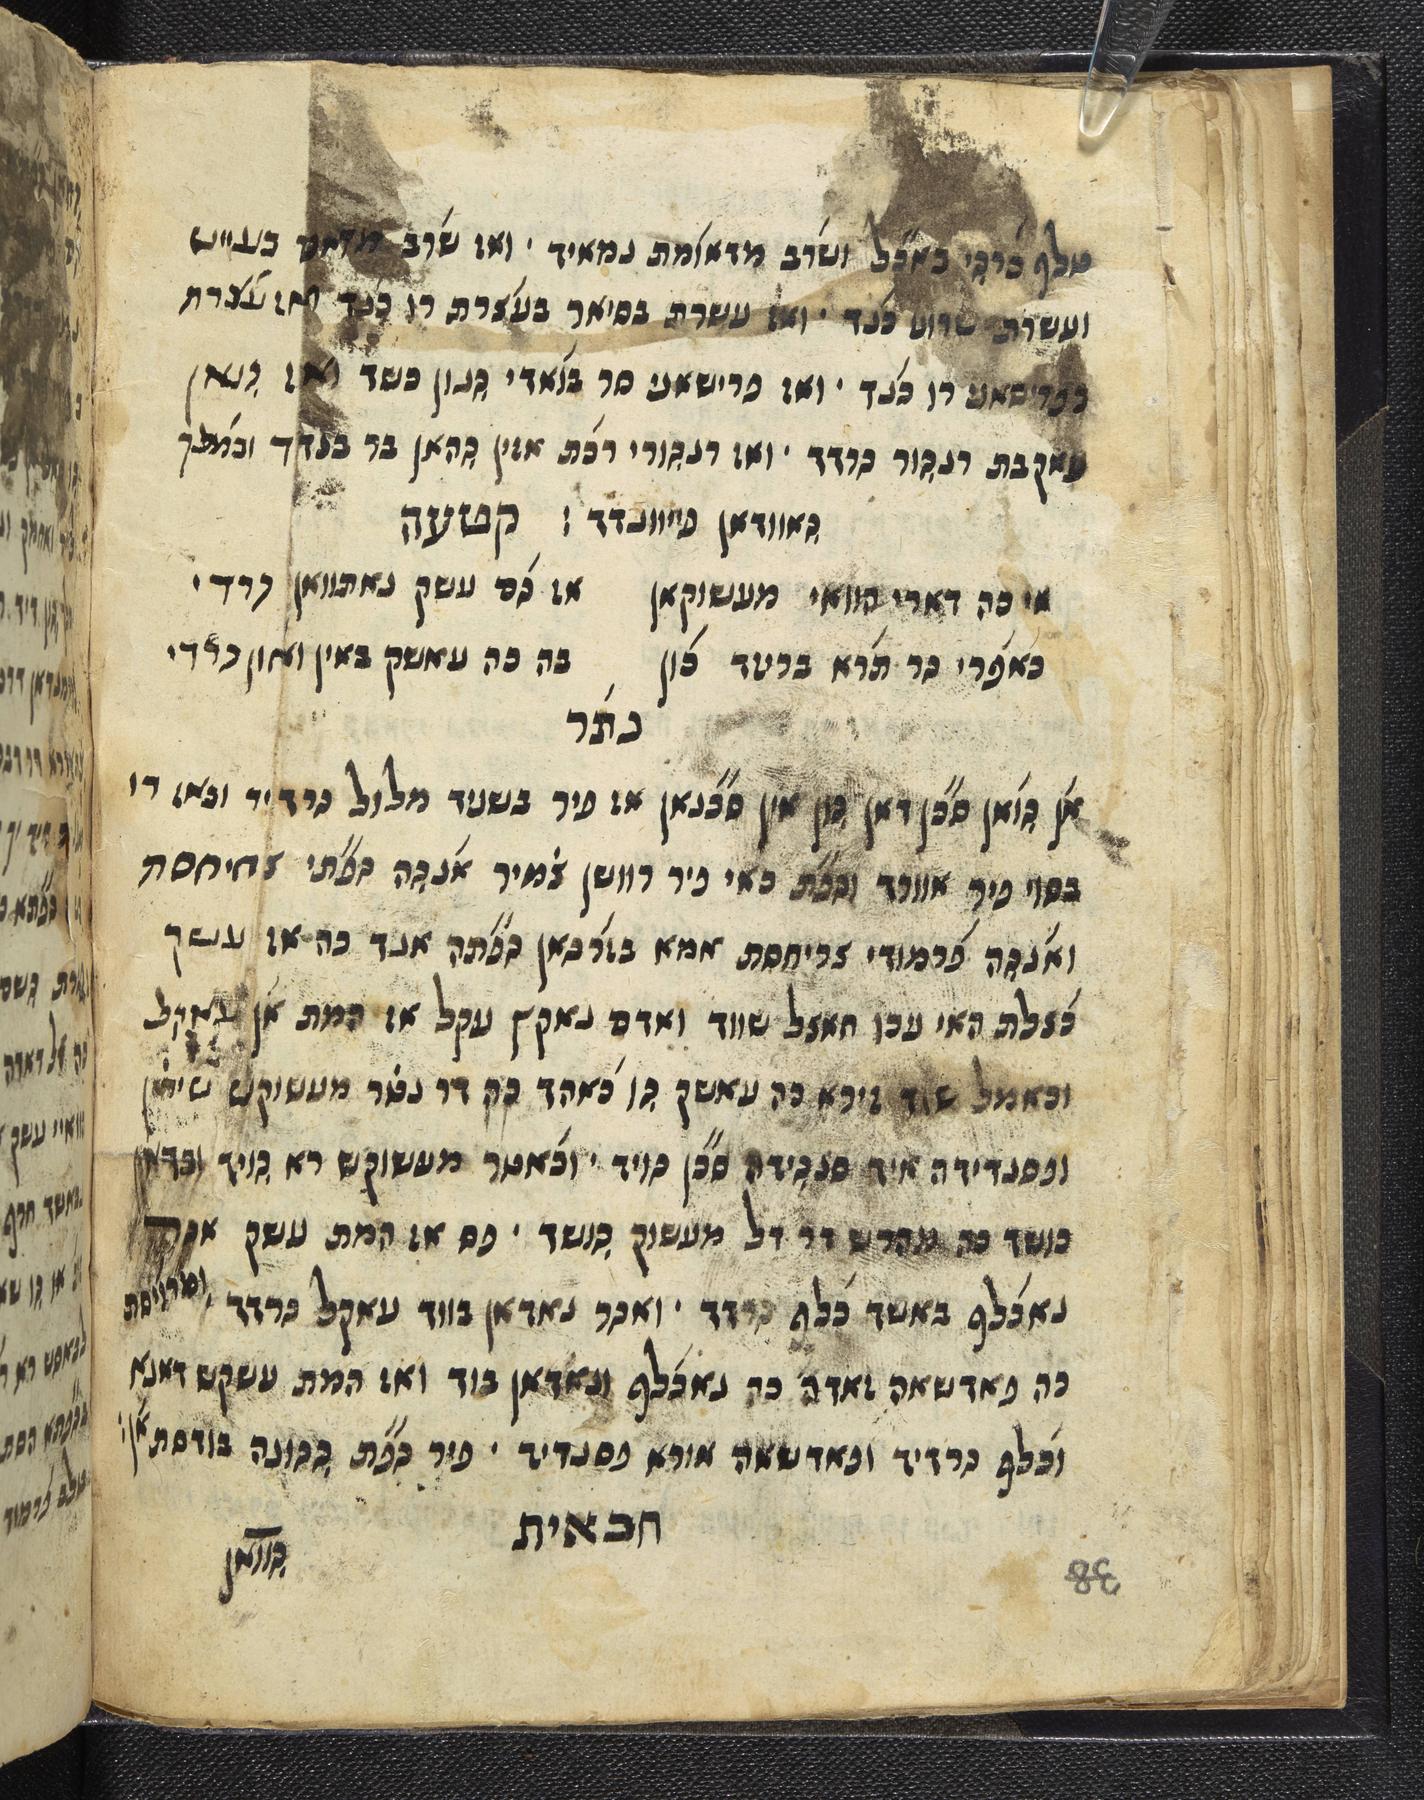 טלף כ̇רגי באכ̇כל ושרב מדאומת נמאיד ׳ ואז שרב בעייש
ועשרת שרוע כנד ׳ ואז עשרת בסיאר בעצרת רו כנד ואז עצרת
בפרישאני רו כנד ׳ ואז פרישאני סר בואדי גנון כשד ואז גנאן
עאקבת רנגור גרדד ׳ ואז רנגורי רכ̇ת אזין גהאן בר בנדד ובמלך
גאוודאן פייוונדד : קטעה
אי כה דארי הוואי מעשוקאן אז כ̇ם עשק נאתוואן גרדי
כאפ̇רי גר תרא ברסד כ̇ון בה כה עאשק באין ואון גרדי
נת̇ר
אן גואן סכ̇ן דאן גון אין סכ̇נאן אז פיר בשניד מלול גרדיד ובאז רו
בסוי פיר אוורד וגפ̇ת כאי פיר רוושן צ̇מיר אנגה גפ̇תי צחיחסת
ואנגה פ̇רמודי צריחסת אמא בזרגאן גפ̇תה אנד כה אז עשק
כ̇צלת האי נכו חאצל שווד ואדם נאקץ עקל אז המת אן עאקל
וכאמל שוד זירא כה עאשק גו כ̇אהד כה דר נט̇ר מעשוקש שירין
ופסנדידה איד סנגידה סכ̇ן גויד ׳ וכ̇אטר מעשוקש רא גויד ובדאן
כושד כה מהרש דר דל מעשוק גושד ׳ פס אז המת עשק אגר
נאכ̇לף באשד כ̇לף גרדד ׳ ואגר נאדאן בווד עאקל גרדד ׳
כה פאדשאה זאדה כה נאכ̇לף ונאדאן בוד ואז המת עשקש דאנא
וכ̇לף גרדיד ופאדשאה אורא פסנדיד ׳ פיר גפ̇ת גגונה בודסת אן :
חכאית
גוואן
38